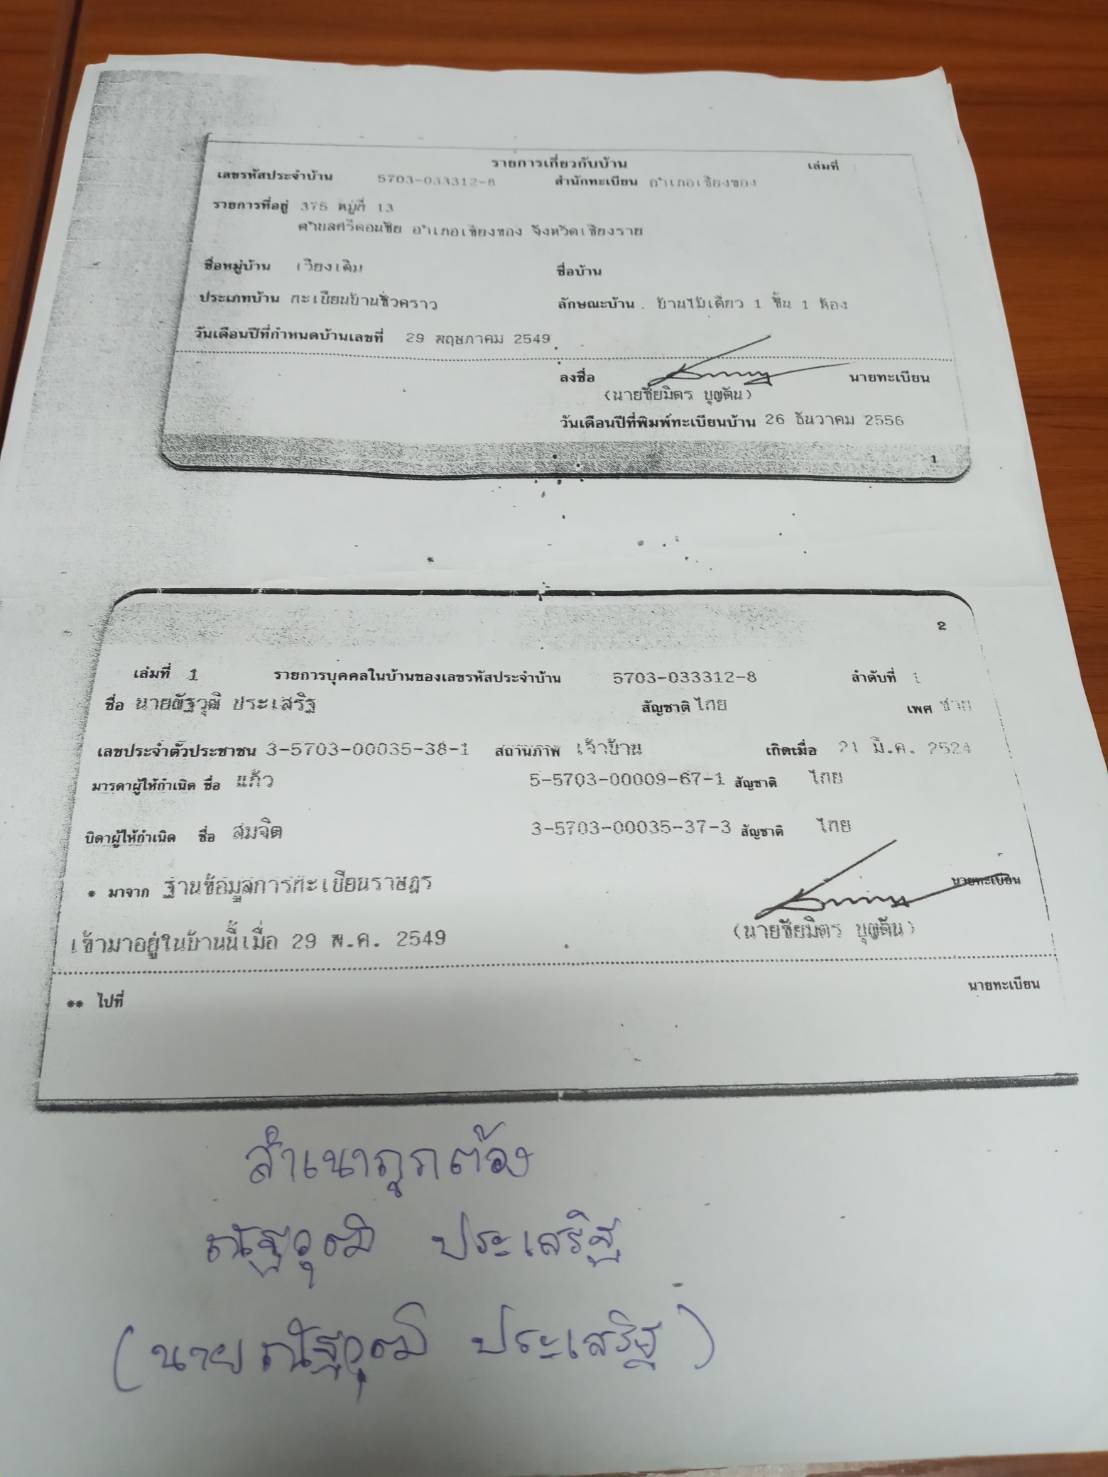 รายการเกี่ยวกับบ้าน เล่มที่
เลขรหัสประจำบ้าน 5703-033312-8 สำนักทะเบียน อำเภอเชียงของ
รายการที่อยู่ 375 หมู่ที่ 13
ตำบลศรีดอนชัย อำเภอเชียงของ จังหวัดเชียงราย
ชื่อหมู่บ้าน เวียงเดิม ชื่อบ้าน
ประเภทบ้าน ทะเบียนบ้านชั่วคราว ลักษณะบ้าน บ้านไม้เดี่ยว 1 ชั้น 1 ห้อง
วันเดือนปีที่กำหนดบ้านเลขที่ 29 พฤษภาคม 2549
ลงชื่อ นายทะเบียน
(นายชัยมิตร บุญตัน)
วันเดือนปีที่พิมพ์ทะเบียนบ้าน 26 ธันวาคม 2556
1
2
เล่มที่ 1 รายการบุคคลในบ้านของเลขรหัสประจำบ้าน 5703-033312-8 ลำดับที่ 1
ชื่อ นายณัฐวุฒิ ประเสริฐ สัญชาติ ไทย เพศ ชาย
เลขประจำตัวประชาชน 3-5703-00035-38-1 สถานภาพ เจ้าบ้าน เกิดเมื่อ 21 มี.ค. 2524
มารดาผู้ให้กำเนิด ชื่อ แก้ว 5-5703-00009-67-1 สัญชาติ ไทย
บิดาผู้ให้กำเนิด ชื่อ สมจิต 3-5703-00035-37-3 สัญชาติ ไทย
* มาจาก ฐานข้อมูลการทะเบียนราษฎร นายทะเบียน
เข้ามาอยู่ในบ้านนี้เมื่อ 29 พ.ค. 2549 (นายชัยมิตร บุญตัน)
** ไปที่ นายทะเบียน
สำเนาถูกต้อง
ณัฐวุฒิ ประเสริฐ
(นายณัฐวุฒิ ประเสริฐ)